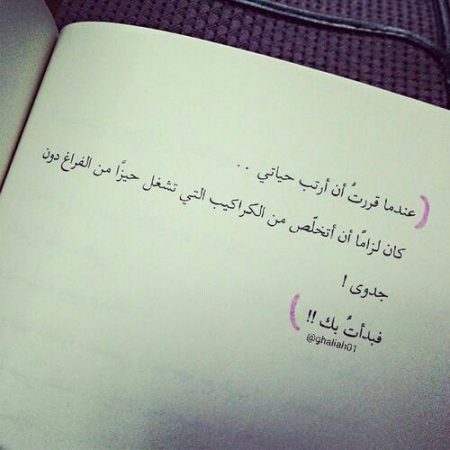 (عندما قررتُ أن أرتب حياتي ..
كان لزامًا أن أتخلّص من الكراكيب التي تشغل حيزًا من الفراغ دون
جدوى !
فبدأتُ بك !! )
@ghaliah01